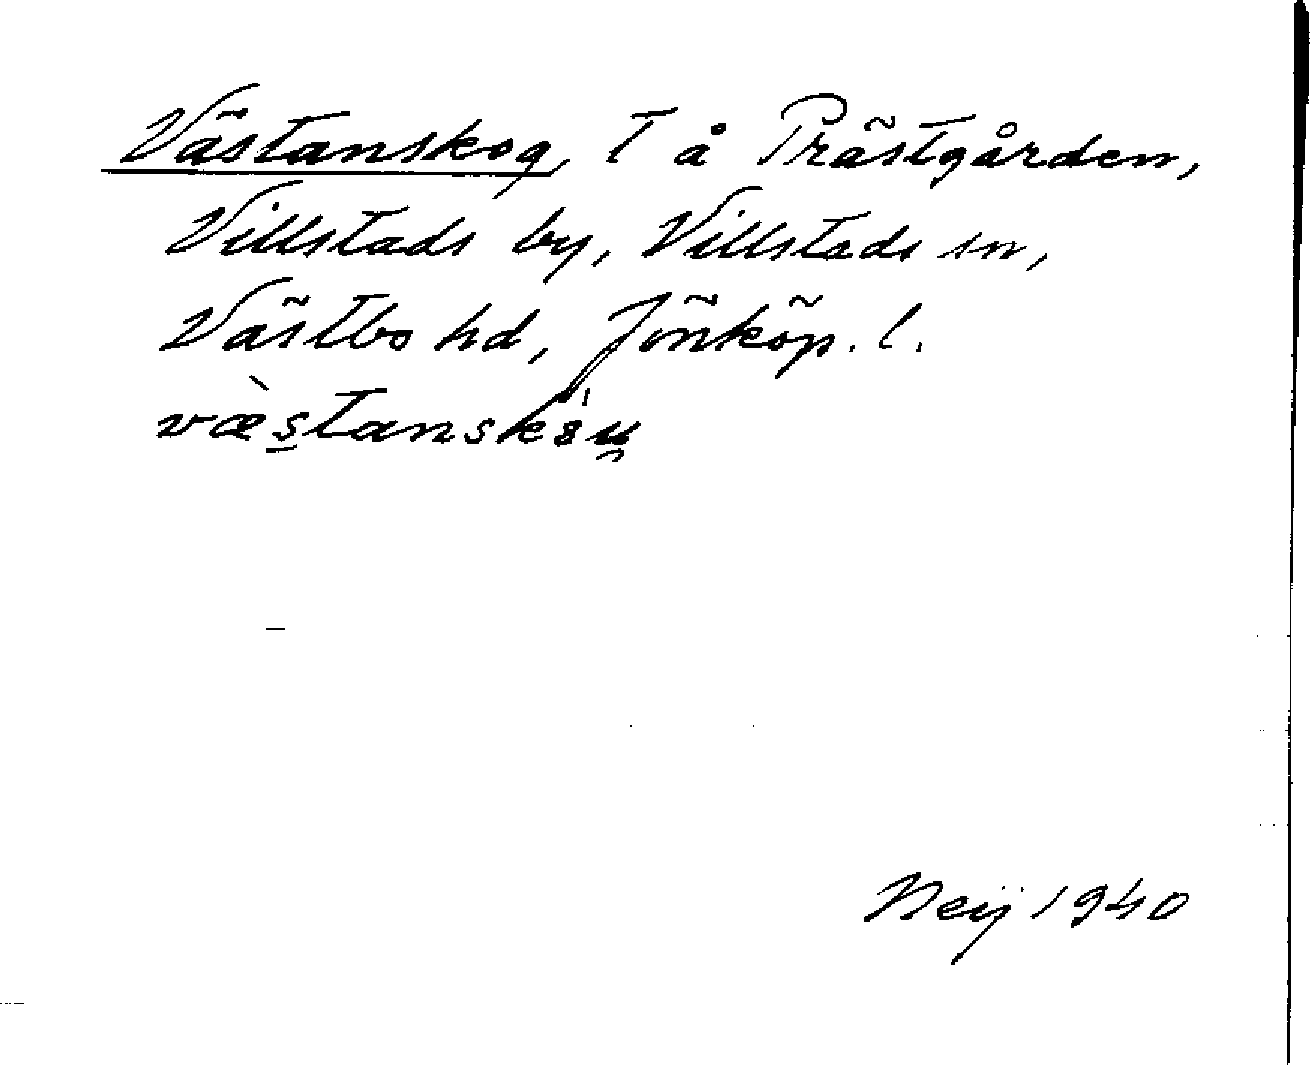 Västanskog, T å Prästgården,
Villstads by, Villstads sn,
Västbo hd, Jönköp. l.
Neij 1940